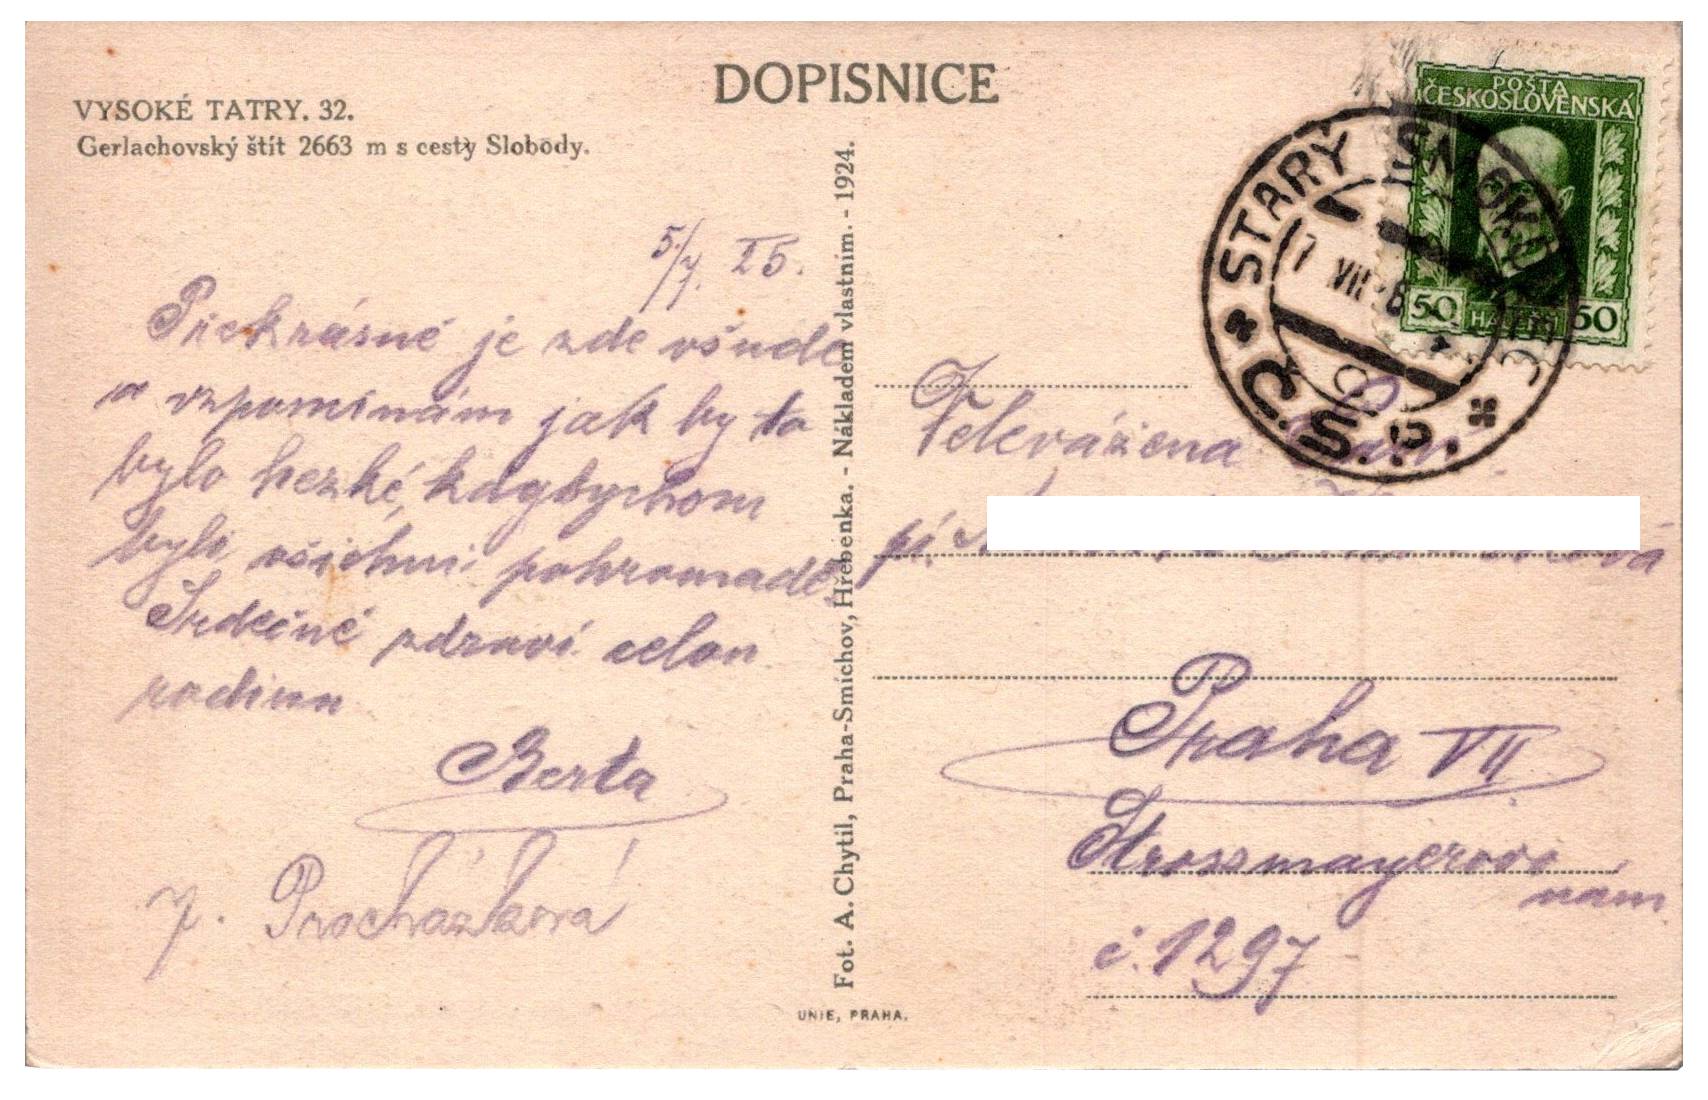 DOPISNICE
VYSOKÉ TATRY. 32.
Gerlachovský štít 2663 m s cesty Slobody.
5/7. 25.
Překrásné je zde všude
a vzpomínám jak by to
bylo hezké, kdybychom
byli všichni pohromadě.
Srdečně zdraví celou
rodinu
Berta
J. Procházková
Fot. A. Chytil, Praha-Smíchov, Hřebenka. - Nákladem vlastním. - 1924.
UNIE, PRAHA.
POŠTA
ČESKOSLOVENSKÁ
50 HALÉŘŮ 50
STARÝ
7 VII
Č.S.P.
Velevážená
pí.
Praha VII
Strossmayerovo
nám
č. 1297